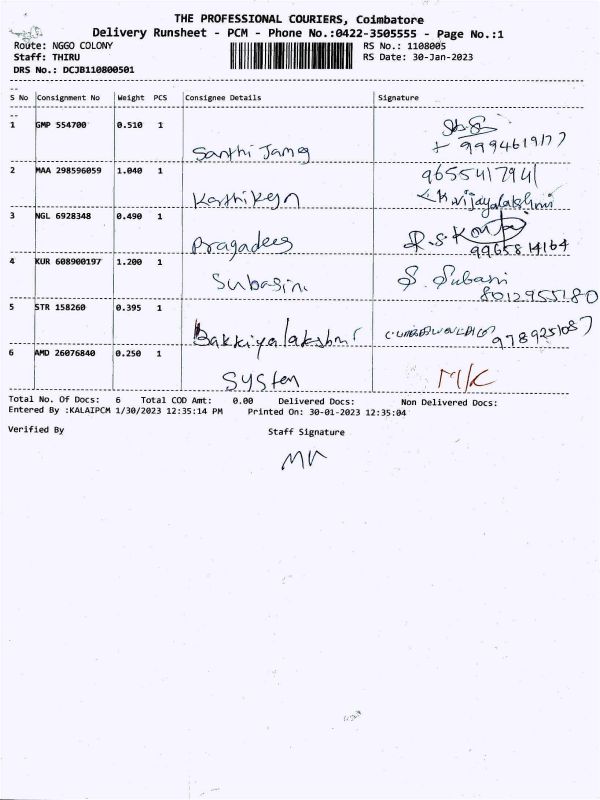 THE PROFESSIONAL COURIERS, Coimbatore
Delivery Runsheet - PCM - Phone No.:0422-3505555 - Page No.:1
Route: NGGO COLONY RS No.: 1108005
Staff: THIRU RS Date: 30-Jan-2023
DRS No.: DCJB110800501
S No Consignment No Weight PCS Consignee Details Signature
1 GMP 554700 0.510 1
Santhi James
2 MAA 298596059 1.040 1 9655417941
Karthikeyn K.Vijayalakshmi
3 NGL 6928348 0.490 1
Pragadees R.S. 9965814164
4 KUR 608900197 1.200 1 S. Subasini
Subasini 8012955180
5 STR 158260 0.395 1
Bakkiyalakshmi 9789251087
6 AMD 26076840 0.250 1
System M/C
Total No. Of Docs: 6 Total COD Amt: 0.00 Delivered Docs: Non Delivered Docs:
Entered By :KALAIPCM 1/30/2023 12:35:14 PM Printed On: 30-01-2023 12:35:04
Verified By Staff Signature